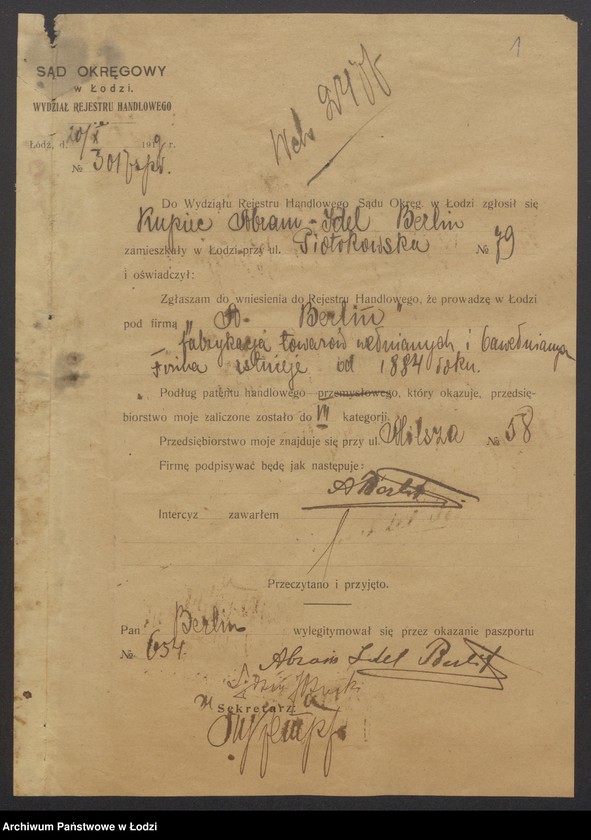 1
SĄD OKRĘGOWY
w Łodzi.
WYDZIAŁ REJESTRU HANDLOWEGO
Łodź, d. 20/X 1919 r.
№ 3017
Do Wydziału Rejestru Handlowego Sądu Okręg. w Łodzi zgłosił się
Kupiec Abram-Idel Berlin
zamieszkały w Łodzi przy ul. Piotrkowska № 79
i oświadczył:
Zgłaszam do wniesienia do Rejestru Handlowego, że prowadzę w Łodzi
pod firmą „A. Berlin"
fabrykacja towarów wełnianych i bawełnianych
firma istnieje od 1884 roku.
Podług patentu handlowego przemysłowego, który okazuje, przedsię-
biorstwo moje zaliczone zostało do VII kategorji.
Przedsiębiorstwo moje znajduje się przy ul. Milsza № 58
Firmę podpisywać będę jak następuje:
A Berlin
Intercyz zawarłem
Przeczytano i przyjęto.
Pan Berlin wylegitymował się przez okazanie paszportu
№ 654.
Abram Idel Berlin
Sekretarz
Archiwum Państwowe w Łodzi